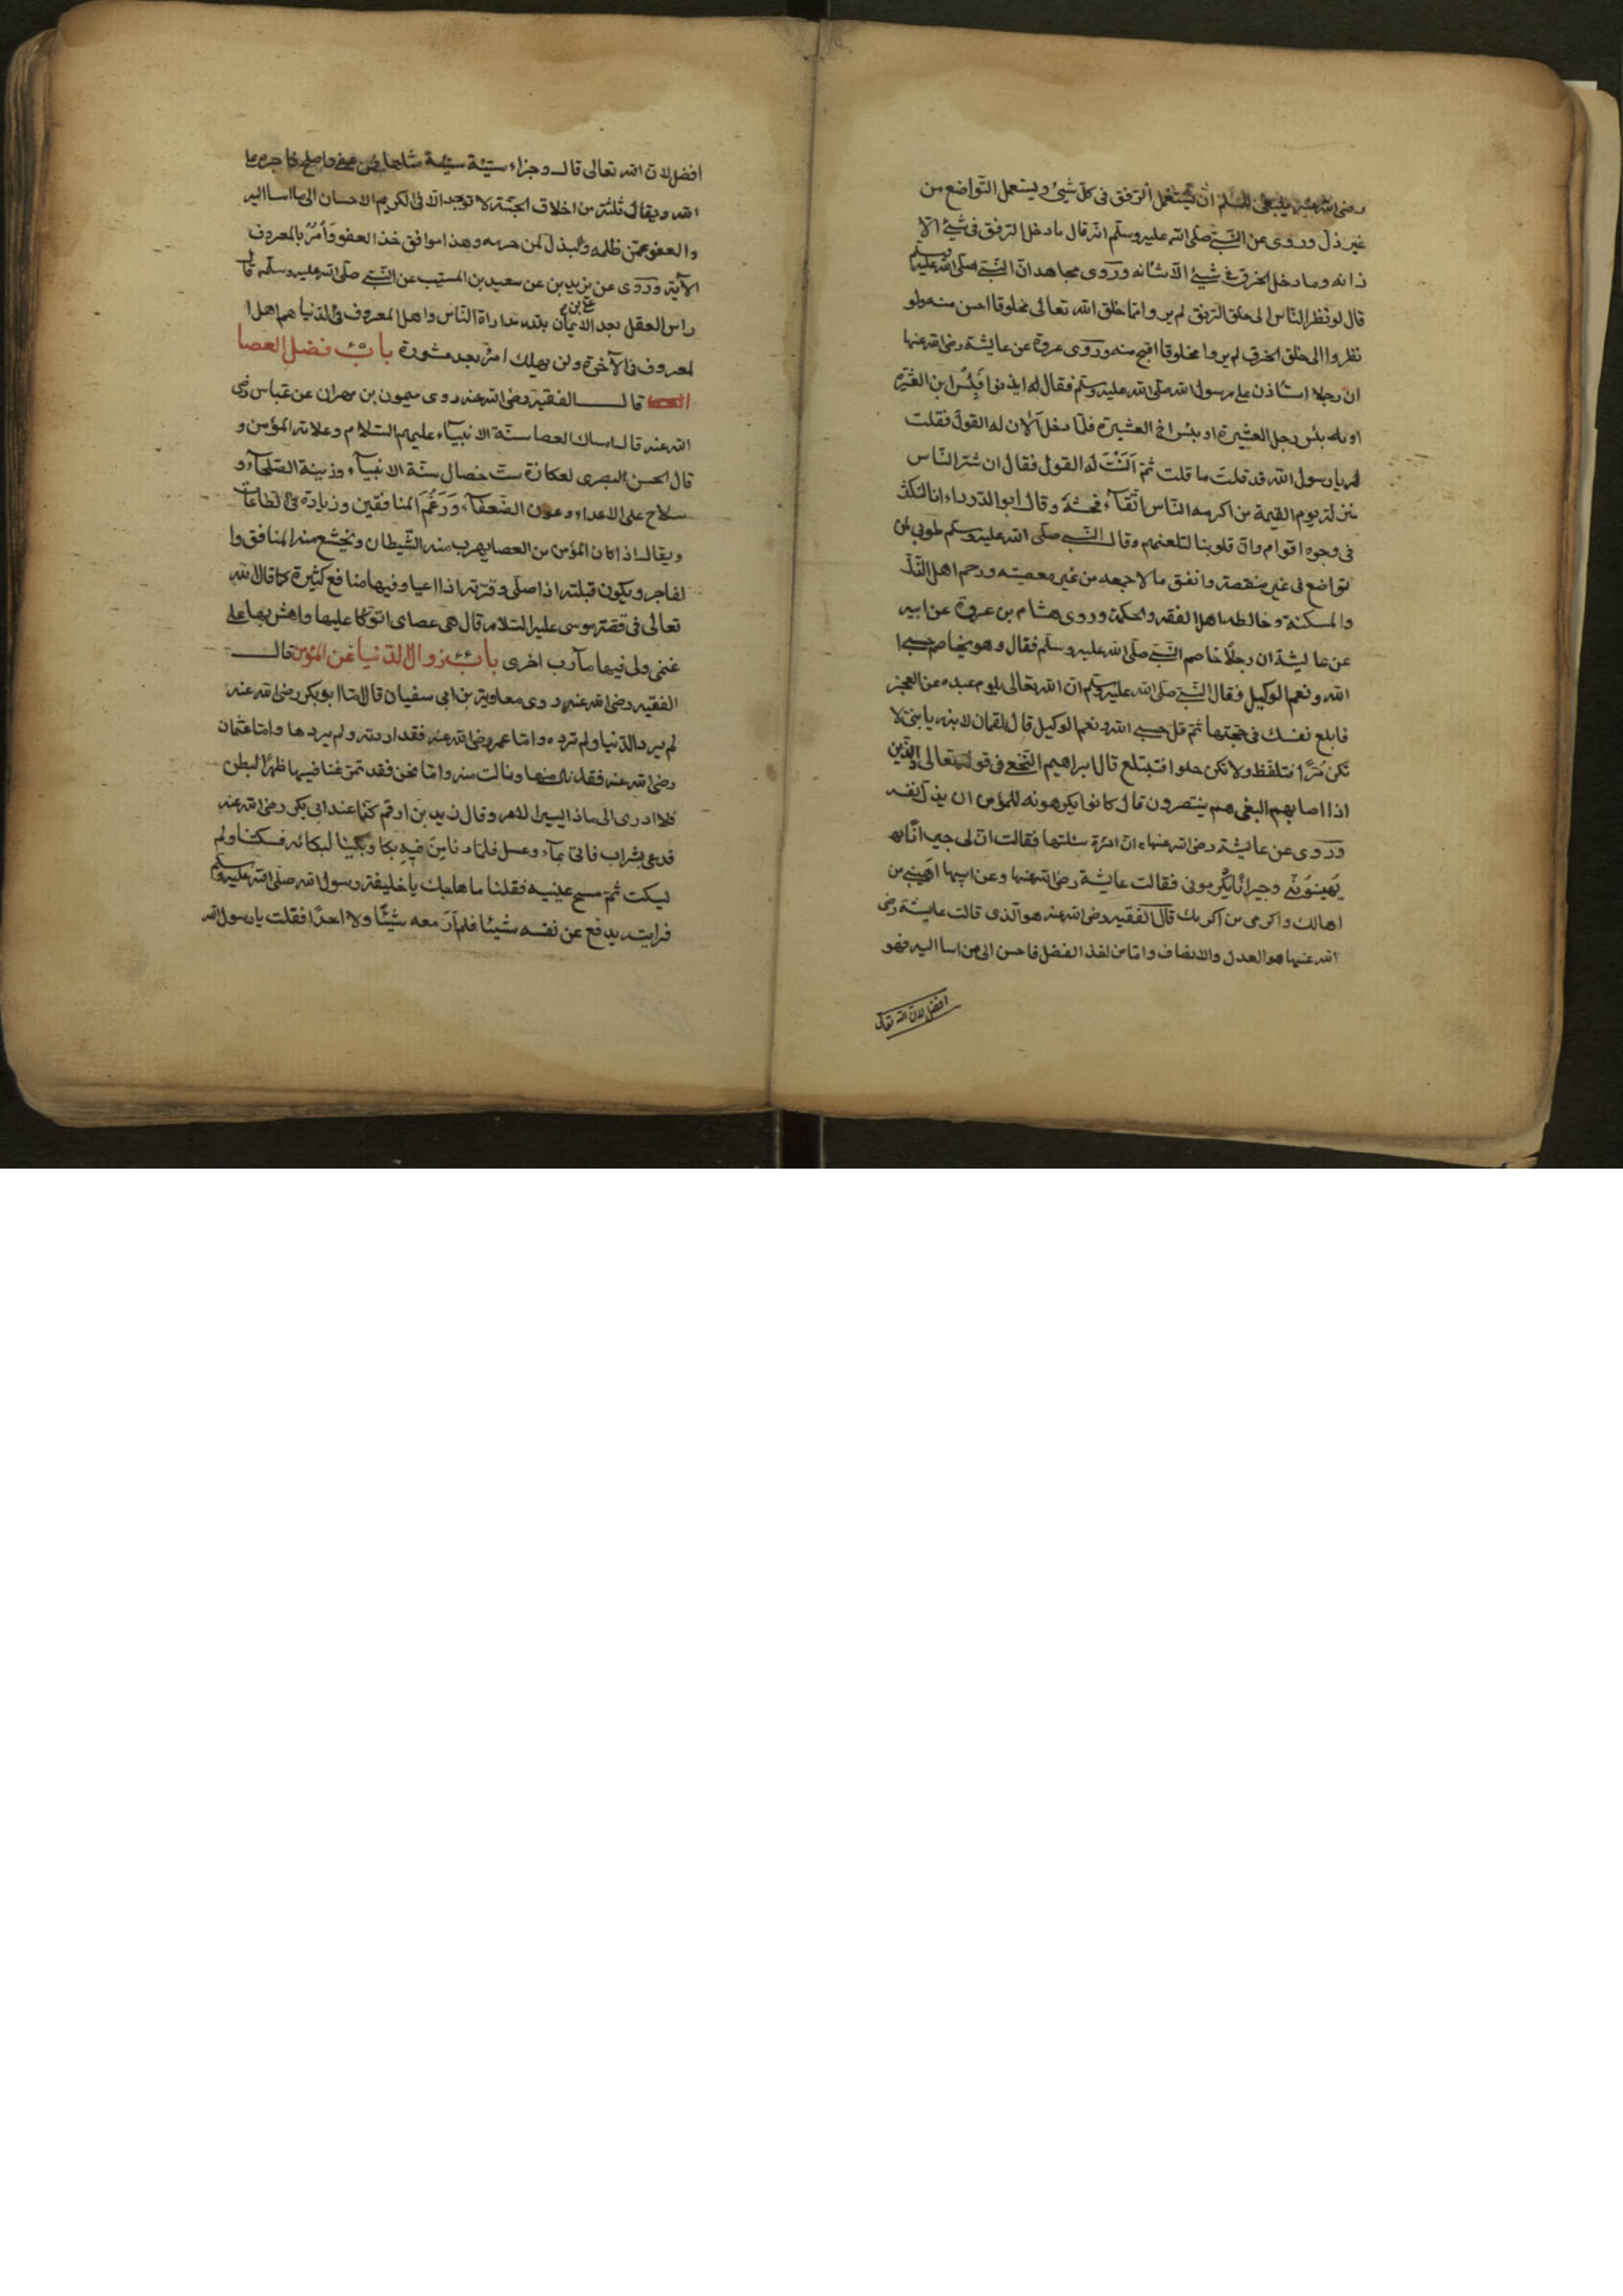 رضى الله عنه ينبغى للمسلم ان يستعمل الرفق فى كل شيئ ويستعمل التواضع من
غير ذل وروى عن النبى صلى الله عليه وسلم انه قال ما دخل الرفق فى شيئ الا
زانه وما دخل الخرق فى شيئ الا شانه وروى مجاهد ان النبى صلى الله عليه وسلم
قال لو نظر الناس الى خلق الرفق لم يروا مما خلق الله تعالى مخلوقا احسن منه ولو
نظروا الى خلق الخرق لم يروا مخلوقا اقبح منه وروى عروة عن عايشة رضى الله عنها
ان رجلا استاذن على رسول الله صلى الله عليه وسلم فقال له ايذنوا فبئس ابن العشيرة
او بئس رجل العشيرة او بئس اخ العشيرة فلما دخل الان له القول فقلت
له يا رسول الله قد قلت ما قلت ثم النت له القول فقال ان شر الناس
منزلة يوم القيمة من اكرمه الناس اتقاء فحشه وقال ابو الدرداء انا لنكشر
فى وجوه اقوام وان قلوبنا لتلعنهم وقال النبى صلى الله عليه وسلم طوبى لمن
تواضع فى غير منقصة وانفق مالا جمعه من غير معصيته ورحم اهل الذل
والمسكنة وخالط اهل الفقه والحكمة وروى هشام بن عروة عن ابيه
عن عايشة ان رجلا خاصم النبى صلى الله عليه وسلم فقال وهو يخاصم حسبى ا
الله ونعم الوكيل فقال النبى صلى الله عليه وسلم ان الله تعالى يلوم عبده عن العجز
فابلغ نفسك فى حجتها ثم قل حسبى الله ونعم الوكيل قال لقمان لابنه يا بنى لا
تكن مرا فتلفظ ولا تكن حلوا فتبتلع قال ابراهيم النخعى فى قوله تعالى والذين
اذا اصابهم البغى هم ينتصرون قال كانوا يكرهونه للمؤمن ان يذل نفسه
وروى عن عايشة رضى الله عنها ان امرة سئلتها فقالت ان لى جيرانا
يهينوننى وجيرانا يكرمونى فقالت عايشة رضى الله عنها وعن ابيها اهينى من
اهانك واكرمى من اكرمك قال الفقيه رضى الله عنه هو الذى قالت عايشة رضى
الله عنها هو العدل والانصاف واما من اخذ الفضل فاحسن الى من اسا اليه فهو
افضل لان الله تعالى
افضل لان الله تعالى قال وجزاء سيئة سيئة مثلها فمن عفى واصلح فاجره على
الله ويقال ثلثة من اخلاق الجنة لا توجد الا فى الكريم الاحسان الى من اسا اليه
والعفو عمن ظلمه والبذل لمن حرمه وهذا موافق خذ العفو وأمر بالمعروف
الآية وروى عن يزيد بن عن سعيد بن المسيب عن النبى صلى الله عليه وسلم قال
راس العقل بعد الايمان بالله مداراة الناس واهل المعروف فى الدنيا هم اهل ا
لمعروف فى الآخرة ولن يهلك امرؤ بعد مشورة باب فضل العصا
العصا قال الفقيه رضى الله عنه روى ميمون بن مهران عن عباس رضى
الله عنه قال امساك العصا سنة الانبياء عليهم السلام وعلامة المؤمن و
قال الحسن البصرى لعكازة ست خصال سنة الانبياء وزينة الصلحاء و
سلاح على الاعداء وعون الضعفاء ورغم المنافقين وزيادة فى الطاعات
ويقال اذا كان المؤمن من العصا يهرب منه الشيطان ويخشع منه المنافق وا
لفاجر ويكون قبلته اذا صلى وقوته اذا اعيا وفيها منافع كثيرة كما قال الله
تعالى فى قصة موسى عليه السلام قال هى عصاى اتوكا عليها واهش بها على
غنمى ولى فيها مآرب اخرى باب زوال الدنيا عن المؤمن قال
الفقيه رضى الله عنه روى معاوية بن ابى سفيان قال اما ابو بكر رضى الله عنه
لم يرد الدنيا ولم ترده واما عمر رضى الله عنه فقد ارادته ولم يردها واما عثمان
رضى الله عنه فقد نال منها ونالت منه واما نحن فقد تمرغنا فيها ظهرا لبطن
فلا ادرى الى ماذا ايسير الامر وقال زيد بن ارقم كنا عند ابى بكر رضى الله عنه
فدعى بشراب فاتى بماء وعسل فلما دنا من فيه بكا وبكينا لبكائه فسكتنا ولم
يسكت ثم مسح عينيه فقلنا ما هاجك يا خليفة رسول الله صلى الله عليه وسلم
فرايته يدفع عن نفسه شيئا فلم ار معه شيئا ولا احدا فقلت يا رسول الله